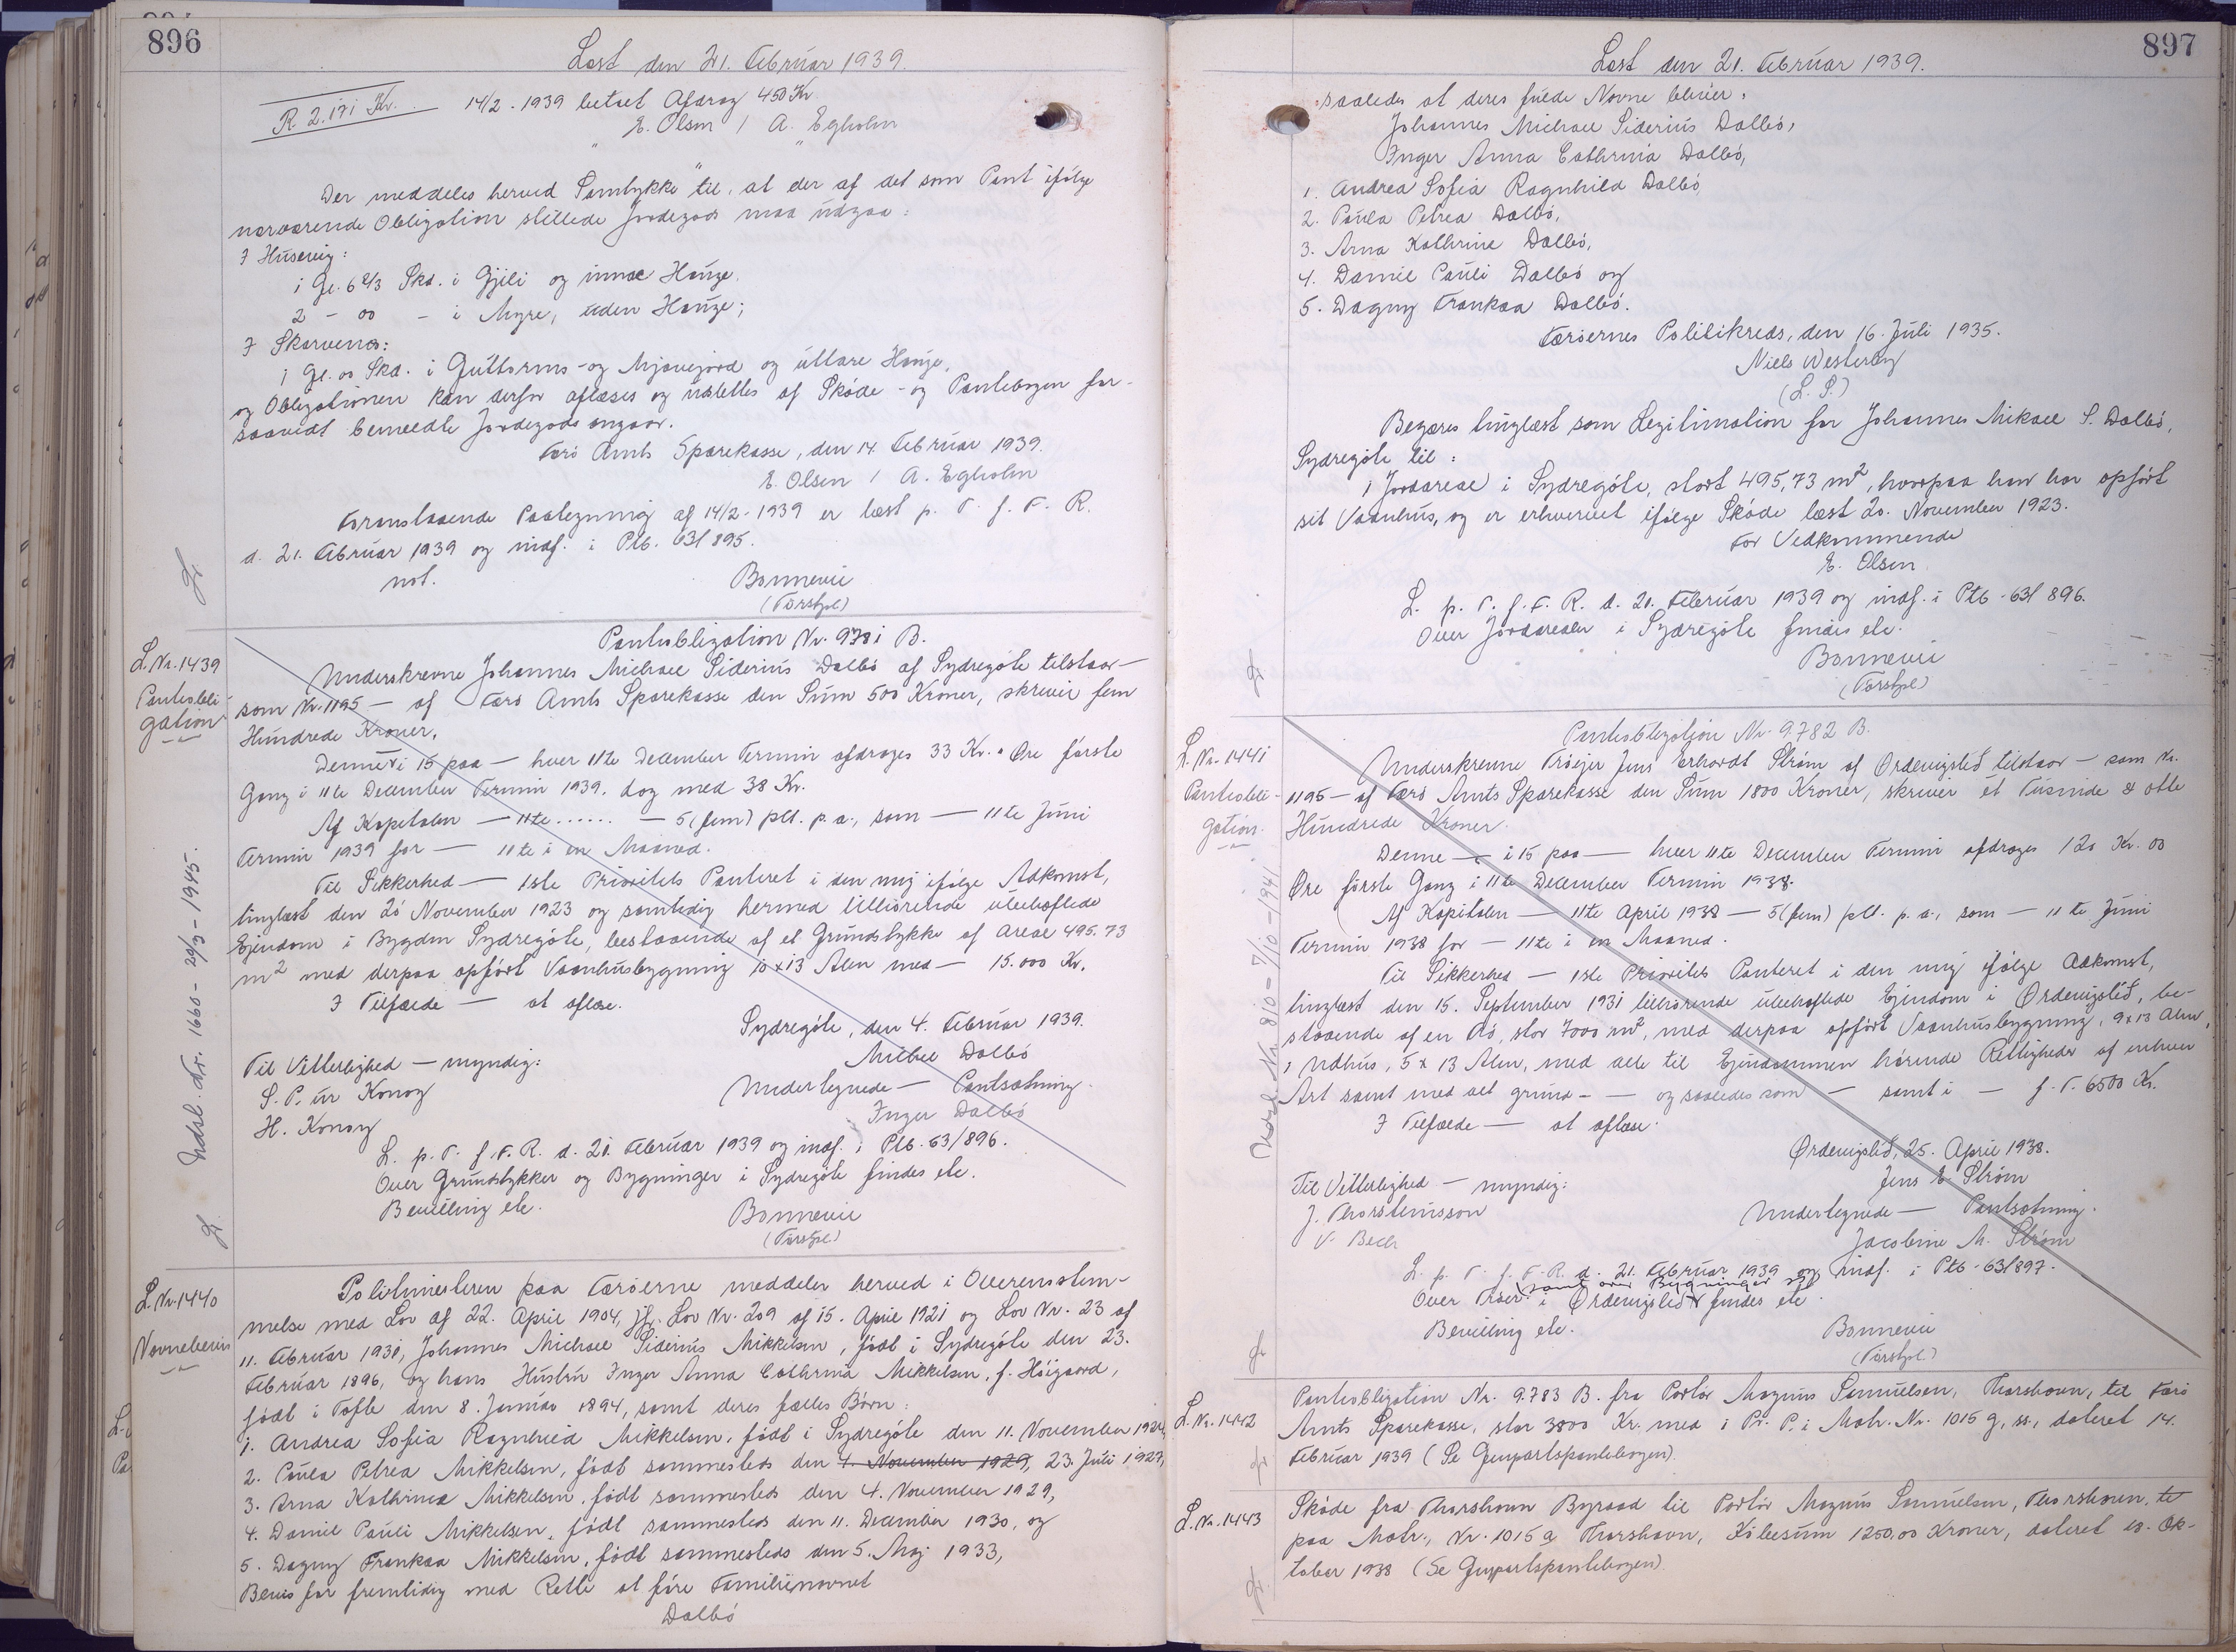 896
Læst den 21. Februar 1939.
R. 2.171 Kr. 14/2-1939 betalt Afdrag 450 Kr.
E. Olsen / A. Egholm
Der meddeles herved Samtykke til, at der af det som Pant ifølge
nærværende Obligation stillede Jordegods maa udgaa:
I Husevig:
1 Gl. 6 2/3 Skd. i Gjili og innae Hauge.
2 - 00 - i Myre, uden Hauge;
I Skarvenes:
1 Gl. 00 Skd. i Guttorms- og Mjavejord og uttare Hauge,
og Obligationen kan derfor aflæses og udslettes af Skøde- og Pantebogen for-
saavidt bemeldte Jordegods angaar.
Færø Amts Sparekasse, den 14. Februar 1939.
E. Olsen / A. Egholm
Foranstaaende Paategning af 14/2-1939 er læst p. T. f. F. R.
d. 21. Februar 1939 og indf. i Ptb. 63/895.
not. Bonnevie
(Færstpl.)
L. Nr. 1439
Panteobli-
gation
Indsl. Nr. 1660 - 29/3 - 1945.
Panteobligation Nr. 9781 B.
Underskrevne Johannes Michael Siderius Dalbø af Sydregøte tilstaar —
som Nr. 1195 — af Færø Amts Sparekasse den Sum 500 Kroner, skriver fem
Hundrede Kroner.
Denne i 15 paa — hver 11te December Termin afdrages 33 Kr. " Øre første
Gang i 11te December Termin 1939. dog med 38 Kr.
Af Kapitalen — 11te ...... — 5 (fem) pct. p. a., som — 11te Juni
Termin 1939 for — 11te i en Maaned.
Til Sikkerhed — 1ste Prioritets Panteret i den mig ifølge Adkomst,
tinglæst den 20 November 1923 og samtidig hermed tilhørende ubehæftede
Ejendom i Bygden Sydregøte, bestaaende af et Grundstykke af Areal 495.73
m2 med derpaa opført Vaanhusbygning 10 x 13 Alen med — 15.000 Kr.
I Tilfælde — at aflæse.
Sydregøte, den 4. Februar 1939.
Til Vitterlighed — myndig: Mikel Dalbø
S. P. úr Konoy Undertegnede — Pantsætning.
H. Konoy Inger Dalbø
L. p. T. f. F. R. d. 21. Februar 1939 og indf. i Ptb. 63/896.
Over Grundstykker og Bygninger i Sydregøte findes etc.
Bevilling etc. Bonnevie
(Færstpl.)
L. Nr. 1440
Navnebevis
Politimesteren paa Færøerne meddeler herved i Overensstem-
melse med Lov af 22. April 1904, jfr. Lov Nr. 209 af 15. April 1921 og Lov Nr. 23 af
11. Februar 1930, Johannes Michael Siderius Mikkelsen, født i Sydregøte den 23.
Februar 1896, og hans Hustru Inger Anna Cathrina Mikkelsen, f. Høigaard,
født i Tofte den 8. Januar 1894, samt deres fælles Børn:
1. Andrea Sofia Ragnhild Mikkelsen, født i Sydregøte den 11. November 1924,
2. Paula Petrea Mikkelsen, født sammesteds den 4. November 1929, 23. Juli 1927,
3. Arna Kathrina Mikkelsen, født sammesteds den 4. November 1929,
4. Daniel Pauli Mikkelsen, født sammesteds den 11. December 1930, og
5. Dagny Frankaa Mikkelsen, født sammesteds den 5. Maj 1933,
Bevis for fremtidig med Rette at føre Familienavnet
Dalbø
897
Læst den 21. Februar 1939.
saaledes at deres fulde Navne bliver:
Johannes Michael Siderius Dalbø,
Inger Anna Cathrina Dalbø,
1. Andrea Sofia Ragnhild Dalbø,
2. Paula Petrea Dalbø,
3. Arna Kathrine Dalbø,
4. Daniel Pauli Dalbø og
5. Dagny Frankaa Dalbø.
Færøernes Politikreds, den 16. Juli 1935.
Niels Westerby
(L. S.)
Begæres tinglæst som Legitimation for Johannes Mikael S. Dalbø,
Sydregøte til:
1 Jordareal i Sydregøte, stort 495,73 m2, hvorpaa han har opført
sit Vaanhus, og er erhvervet ifølge Skøde læst 20. November 1923.
For Vedkommende
E. Olsen.
L. p. T. f. F. R. d. 21. Februar 1939 og indf. i Ptb. 63/896.
Over Jordarealer i Sydregøte findes etc.
Bonnevie
(Færstpl.)
L. Nr. 1441
Panteobli-
gation.
Udsl. Nr. 810 - 7/10 - 1941
Panteobligation Nr. 9.782 B.
Underskrevne Trøejer Jens Erhardt Strøm af Ordevigslid tilstaar — som Nr.
1195 — af Færø Amts Sparekasse den Sum 1800 Kroner, skriver et Tusinde & otte
Hundrede Kroner.
Denne — i 15 paa — hver 11te December Termin afdrages 120 Kr. 00
Øre første Gang i 11te December Termin 1938.
Af Kapitalen — 11te April 1938 — 5 (fem) pct. p. a., som — 11te Juni
Termin 1938 for — 11te i en Maaned.
Til Sikkerhed — 1ste Prioritets Panteret i den mig ifølge Adkomst,
tinglæst den 15. September 1931 tilhørende ubehæftede Ejendom i Ørdevigslid, be-
staaende af en Trø, stor 7000 m2, med derpaa opført Vaanhusbygning, 9 x 13 Alen,
1 Udhus, 5 x 13 Alen, med alle til Ejendommen hørende Rettigheder af enhver
Art samt med alt grund- — og saaledes som — samt i — f. T. 6500 Kr.
I Tilfælde — at aflæse.
Ørdevigslid, 25. April 1938.
Til Vitterlighed — myndig: Jens E. Strøm
J. Thorsteinsson Undertegnede — Pantsætning.
V. Bech Jacobine M. Strøm
L. p. T. f. F. R. d. 21. Februar 1939 og indf. i Ptb. 63/897.
samt over Bygninger
Over Trøer i Ørdevigslid findes etc.
Bevilling etc. Bonnevie
(Færstpl.)
L. Nr. 1442
Panteobligation Nr. 9.783 B. fra Portør Magnus Samuelsen, Thorshavn, til Færø
Amts Sparekasse, stor 3800 Kr. med 1 Pr. P. i Matr. Nr. 1015 g, ss., dateret 14.
Februar 1939 (Se Genpartspantebogen).
L. Nr. 1443
Skøde fra Thorshavn Byraad til Portør Magnus Samuelsen, Thorshavn, til
paa Matr. Nr. 1015 g Thorshavn, Købesum 1250,00 Kroner, dateret 18. Ok-
tober 1938 (Se Genpartspantebogen)